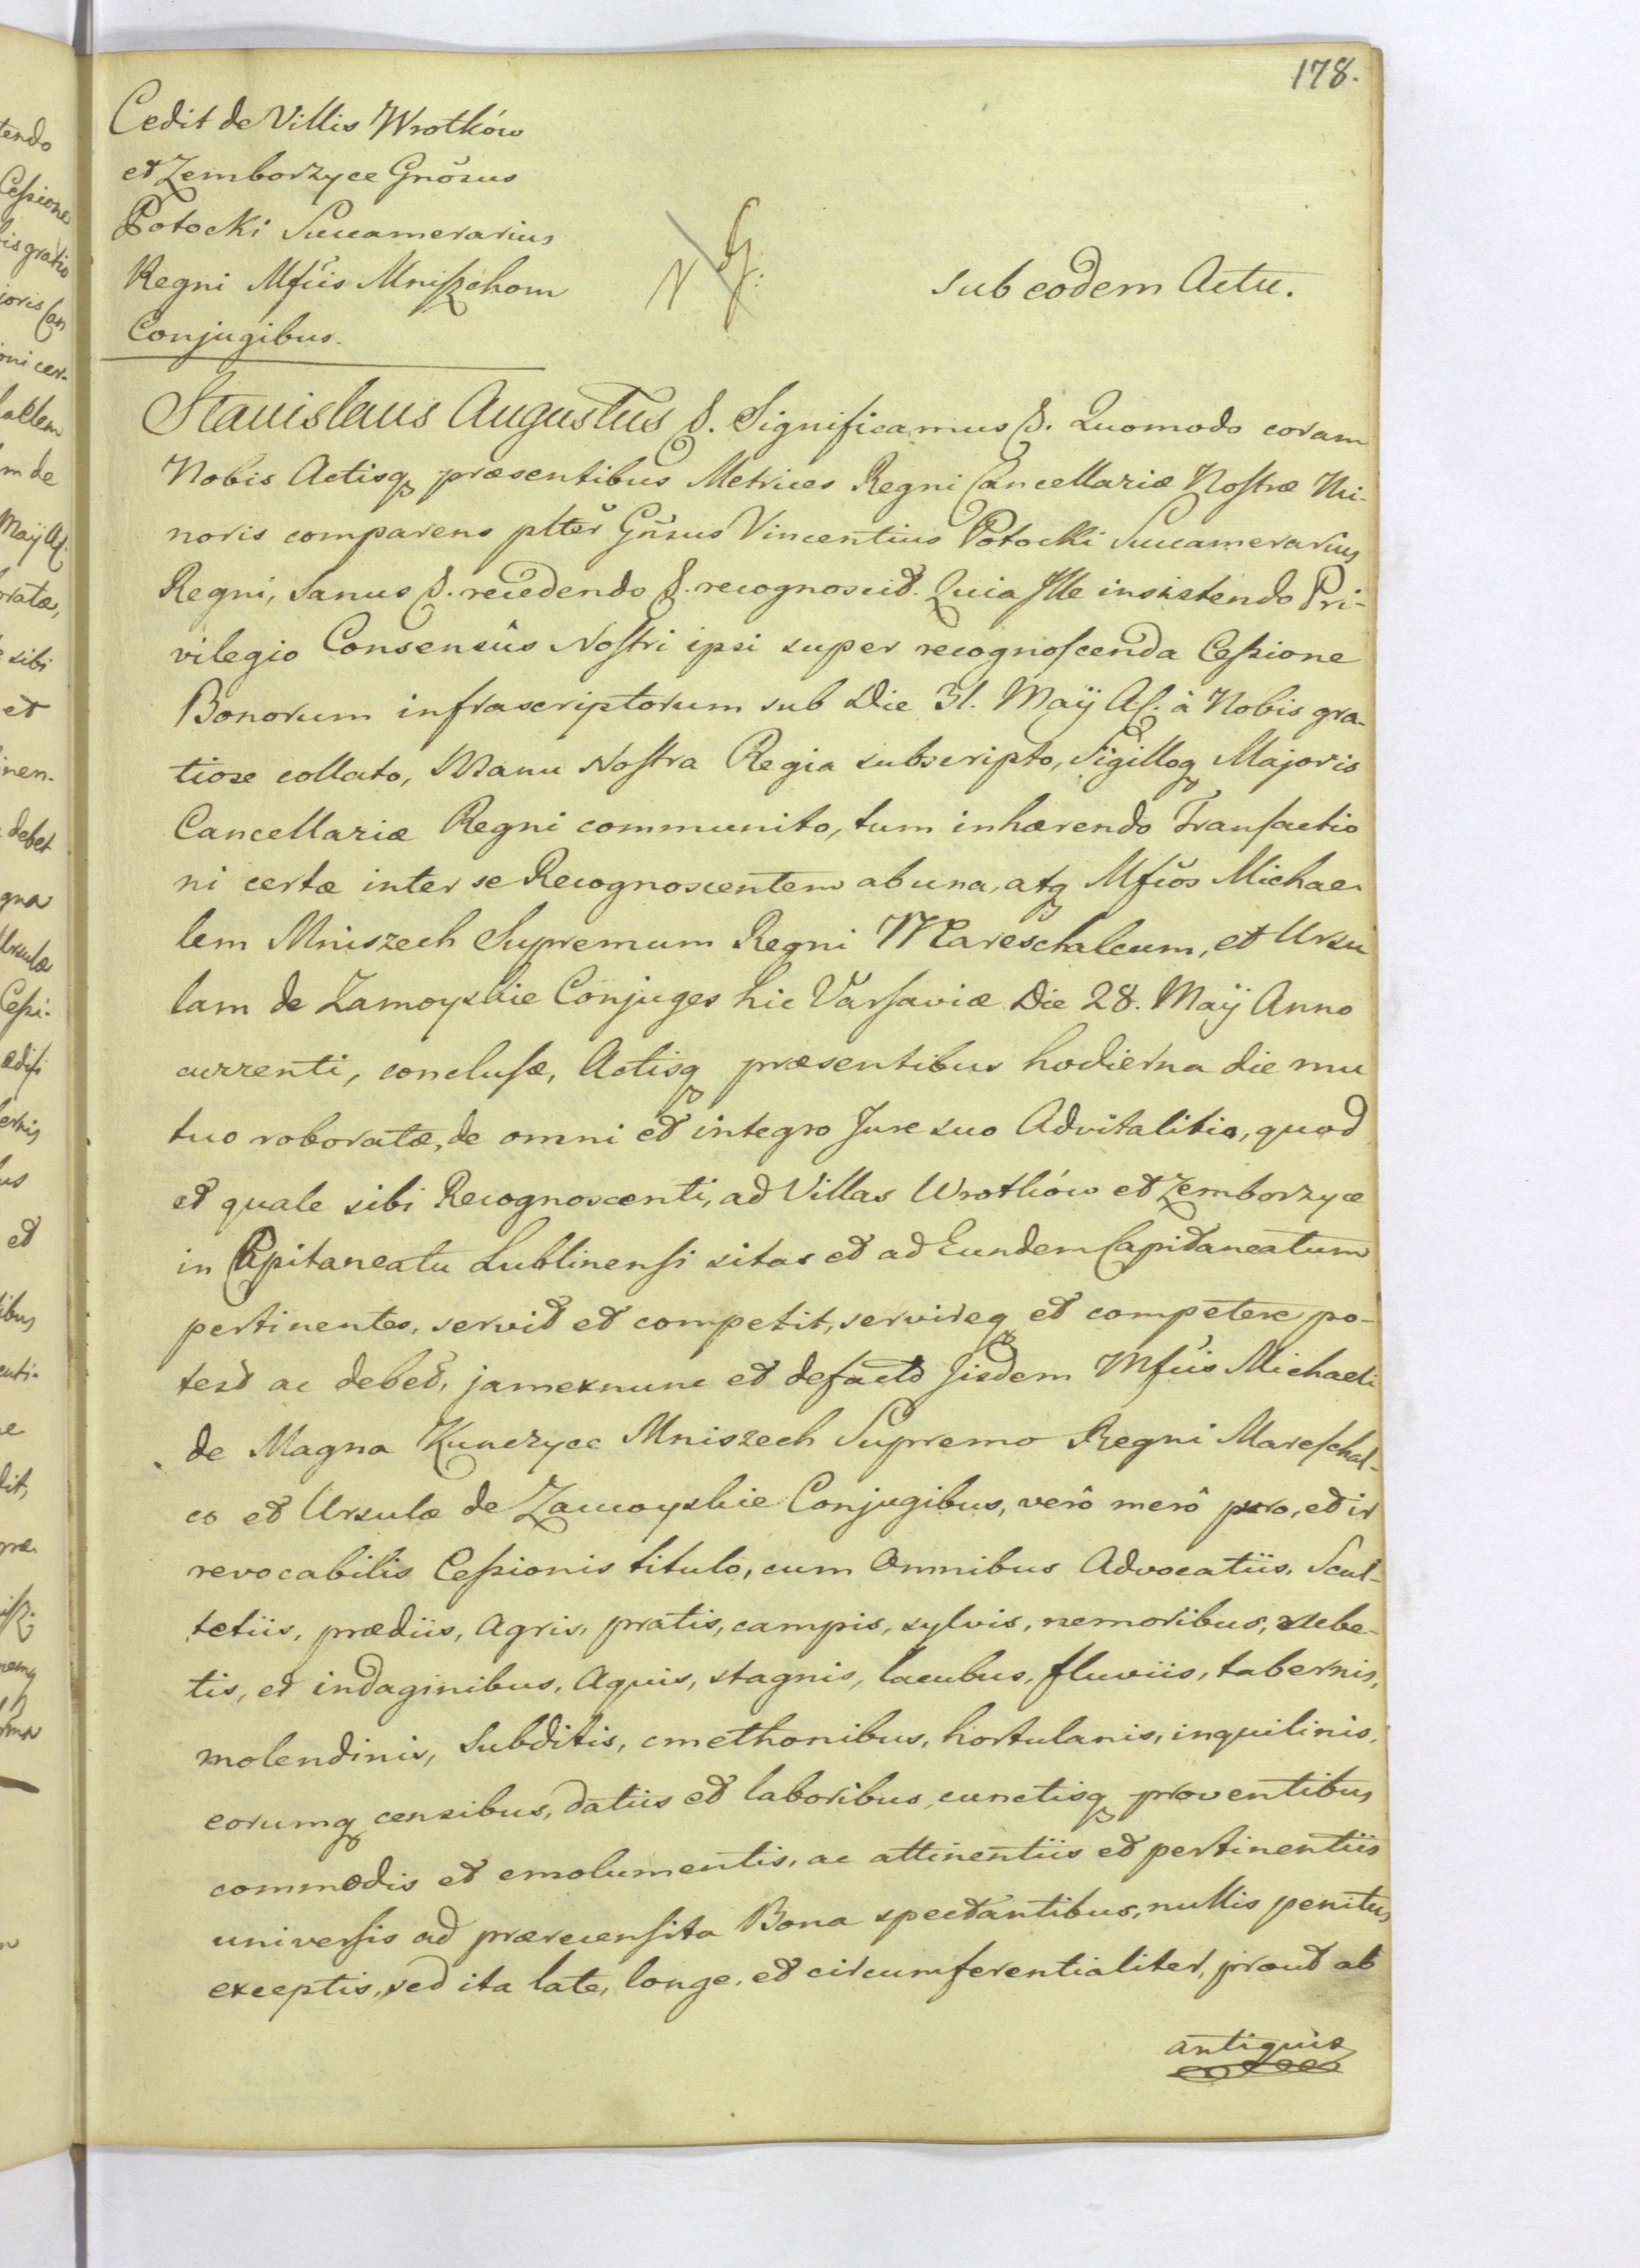 178.
Cedit de Villis Wrotków
et Zemborzyce Gnősus
Potocki Succamerarius
Regni Mfiis Mniszchom
Conjugibus.
sub eodem Actu.
Stanislaus Augustus &. Significamus &. Quomodo coram
Nobis Actisq præsentibus Metrices Regni Cancellariæ Nostræ Mi-
noris comparens plter Gnsus Vincentius Potocki Succamerarius
Regni, Sanus &. recedendo &. recognoscit. Quia Ille insistendo Pri-
vilegio Consensûs Nostri ipsi super recognoscenda Cessione
Bonorum infrascriptorum sub Die 31. Maÿ A C. à Nobis gra-
tiose collato, Manu Nostra Regia subscripto, Sigilloq Majoris
Cancellariæ Regni communito, tum inhærendo Transactio
ni certæ inter se Recognoscentem ab una, atq Mfiŏs Michae-
lem Mniszech Supremum Regni Mareschalcum, et Ursu
lam de Zamoyskie Conjuges hic Varsaviæ Die 28. Maÿ Anno
currenti, conclusæ, Actisq præsentibus hodierna die mu
tuo roboratæ, de omni et integro Jure suo Advitalitio, quod
et quale sibi Recognoscenti, ad Villas Wrotków et Zemborzyce
in Capitaneatu Lublinensi sitas et ad Eundem Capitaneatum
pertinentes, servit et competit, servireq et competere po-
test ac debet, jam ex nunc et de facto Jisdem Mfiis Michaeli
de Magna Kunczyce Mniszech Supremo Regni Mareschal-
co et Ursulæ de Zamoyskie Conjugibus, verô merô puro, et ir
revocabilis Cessionis titulo, cum Omnibus Advocatiis, Scul-
tetiis, prædiis, Agris, pratis, campis, sylvis, nemoribus, rube-
tis, et indaginibus, Aquis, stagnis, lacubus, fluviis, tabernis,
molendinis, Subditis, cmethonibus, hortulanis, inquilinis,
eorumq censibus, datiis et laboribus, cunctisq proventibus
commodis et emolumentis, ac attinentiis et pertinentiis
universis ad prærecensita Bona spectantibus, nullis penitus
exceptis, sed ita late, longe, et circumferentialiter, prout ab
antiquis